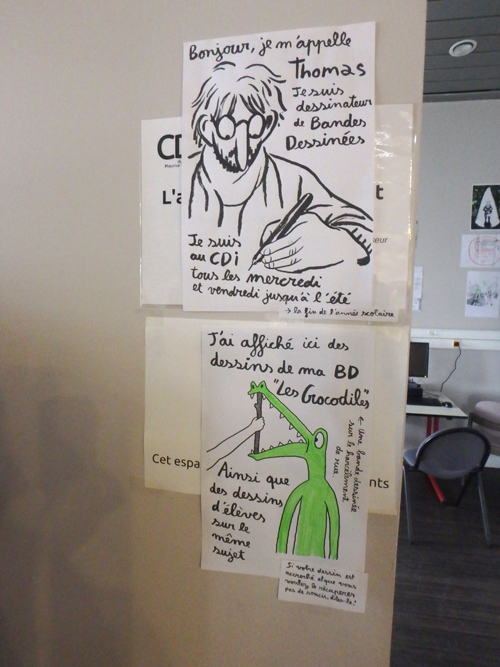 Bonjour, je m'appelle
Thomas
Je suis
dessinateur
de Bandes
Dessinées
CD
L'a
t
Je suis
au CDi
tous les mercredi
et vendredi jusqu'à l'été
→ la fin de l'année scolaire
J'ai affiché ici des
dessins de ma BD
"Les Crocodiles"
← Une bande dessinée
sur le harcèlement
de rue
Cet espa
nts
Ainsi que
des dessins
d'élèves
sur le
même
sujet
Si votre dessin est
accroché et que vous
voulez le récupérer
pas de soucis, dites-le!